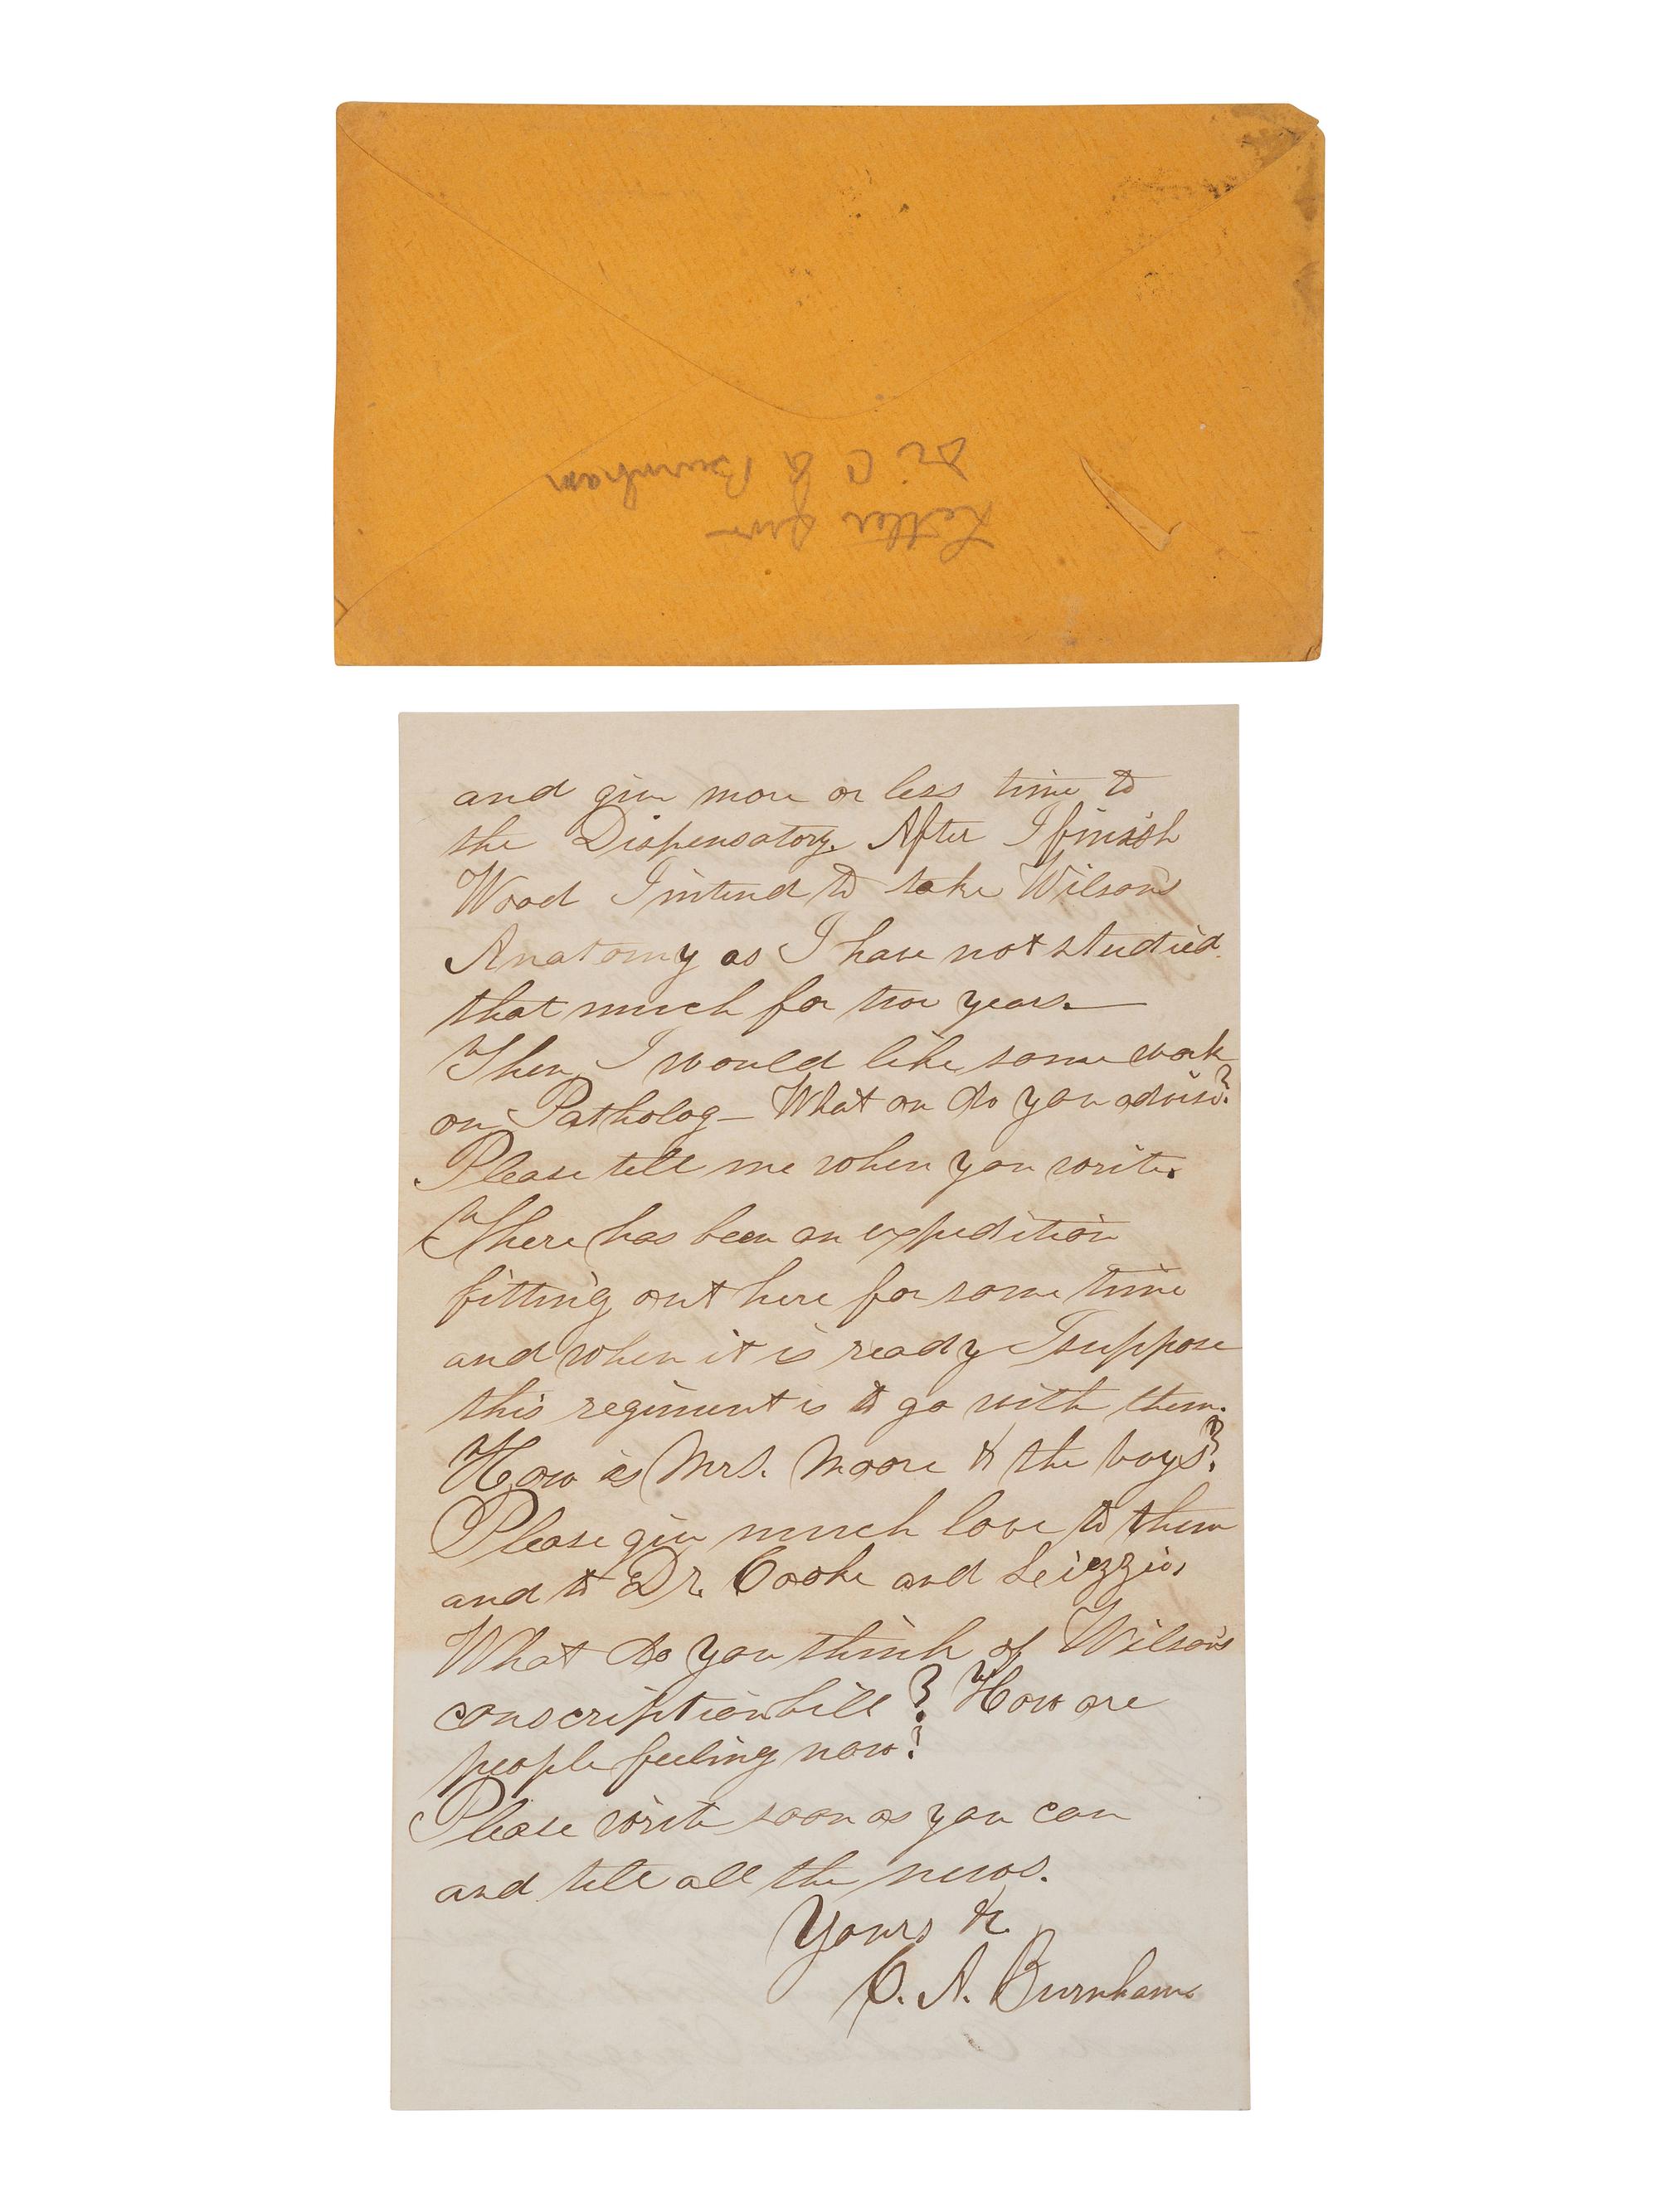 Letter from
Dr C A Burnham
and give more or less time to
the Dispensatory. After I finish
Wood I intend to take Wilson's
Anatomy as I have not studied
that much for two years.—
Then I would like some work
on Patholog— What one do you advise?
Please tell me when you write.
There has been an expedition
fitting out here for some time
and when it is ready I suppose
this regiment is to go with them.
How is Mrs. Moore & the boys?
Please give much love to them
and to Dr. Cooke and Leizzie,
What do you think of Wilson's
conscription bill? How are
people feeling now?
Please write soon as you can
and tell all the news.
Yours &c.
C. A. Burnham.